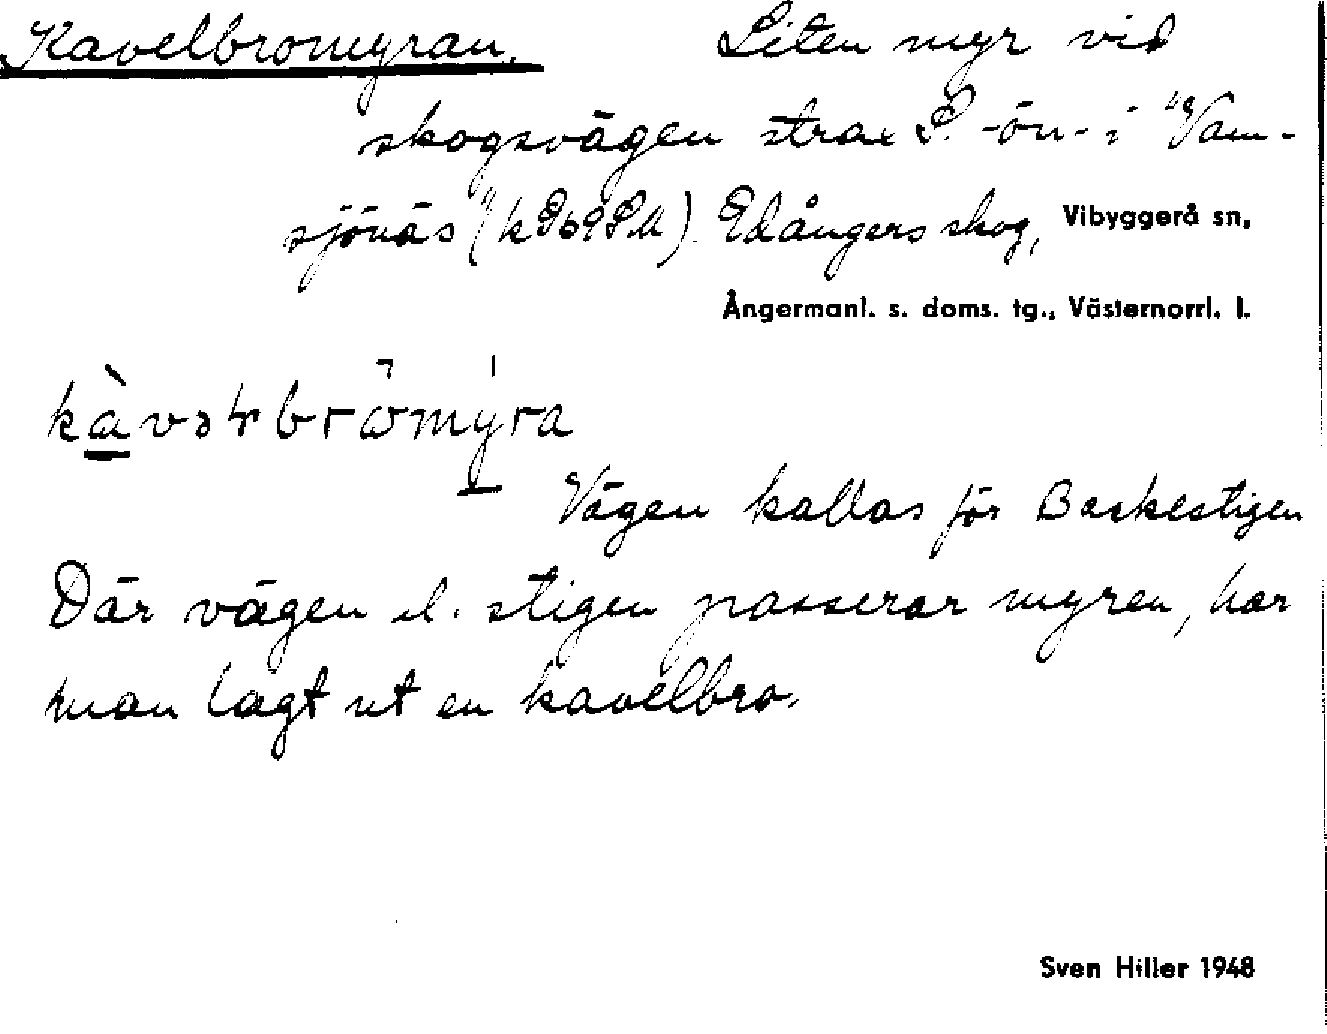 Kavelbromyran. Liten myr vid
skogsvägen strax S. -ön- i "Vam-
sjönäs" (k Edångers skog, Vibyggerå sn,
Ångermanl. s. doms. tg., Västernorrl. l.
Vägen kallas för
Där vägen el. stigen passerar myren, har
man lagt ut en kavelbro.
Sven Hiller 1948